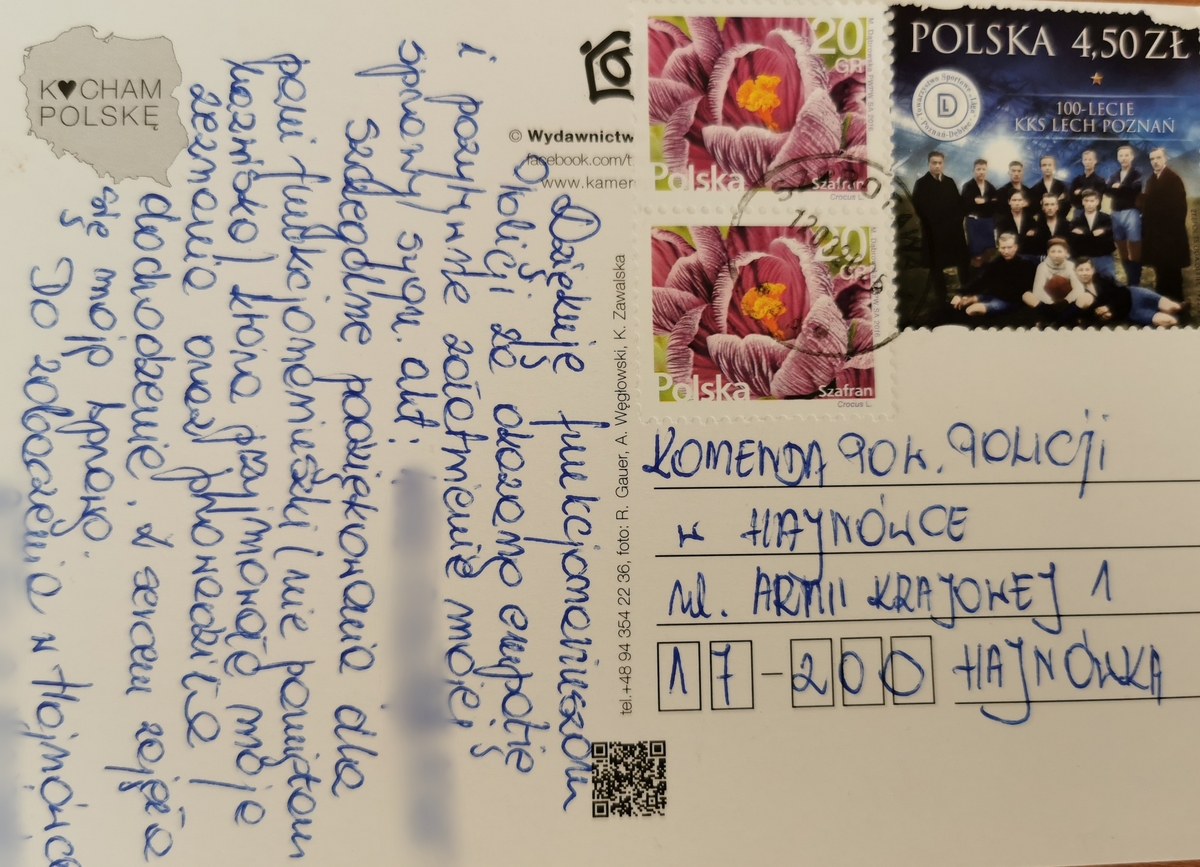 K♥CHAM
POLSKĘ
© Wydawnictw
facebook.com/t
www.kamer
tel.+48 94 354 22 36, foto: R. Gauer, A. Węgłowski, K. Zawalska
20
GR
M. Dąbrowska PWPW SA 2016
Polska
Szafran
Crocus L.
20
GR
Polska
Szafran
Crocus L.
POLSKA 4,50 ZŁ
100-LECIE
KKS LECH POZNAŃ
Towarzystwo Sportowe „Liga”
Poznań-Dębiec
Dziękuję funkcjonariuszom
Policji za okazaną empatię
i pozytywne załatwienie mojej
sprawy sygn. akt:
Szczególne podziękowania dla
pani funkcjonariuszki (nie pamiętam
nazwiska) która przyjmowała moje
zeznania oraz prowadziła
dochodzenie, z sercem zajęła
się moją sprawą.
Do zobaczenia w Hajnówce
KOMENDA POW. POLICJI
w HAJNÓWCE
ul. ARMII KRAJOWEJ 1
17-200 HAJNÓWKA